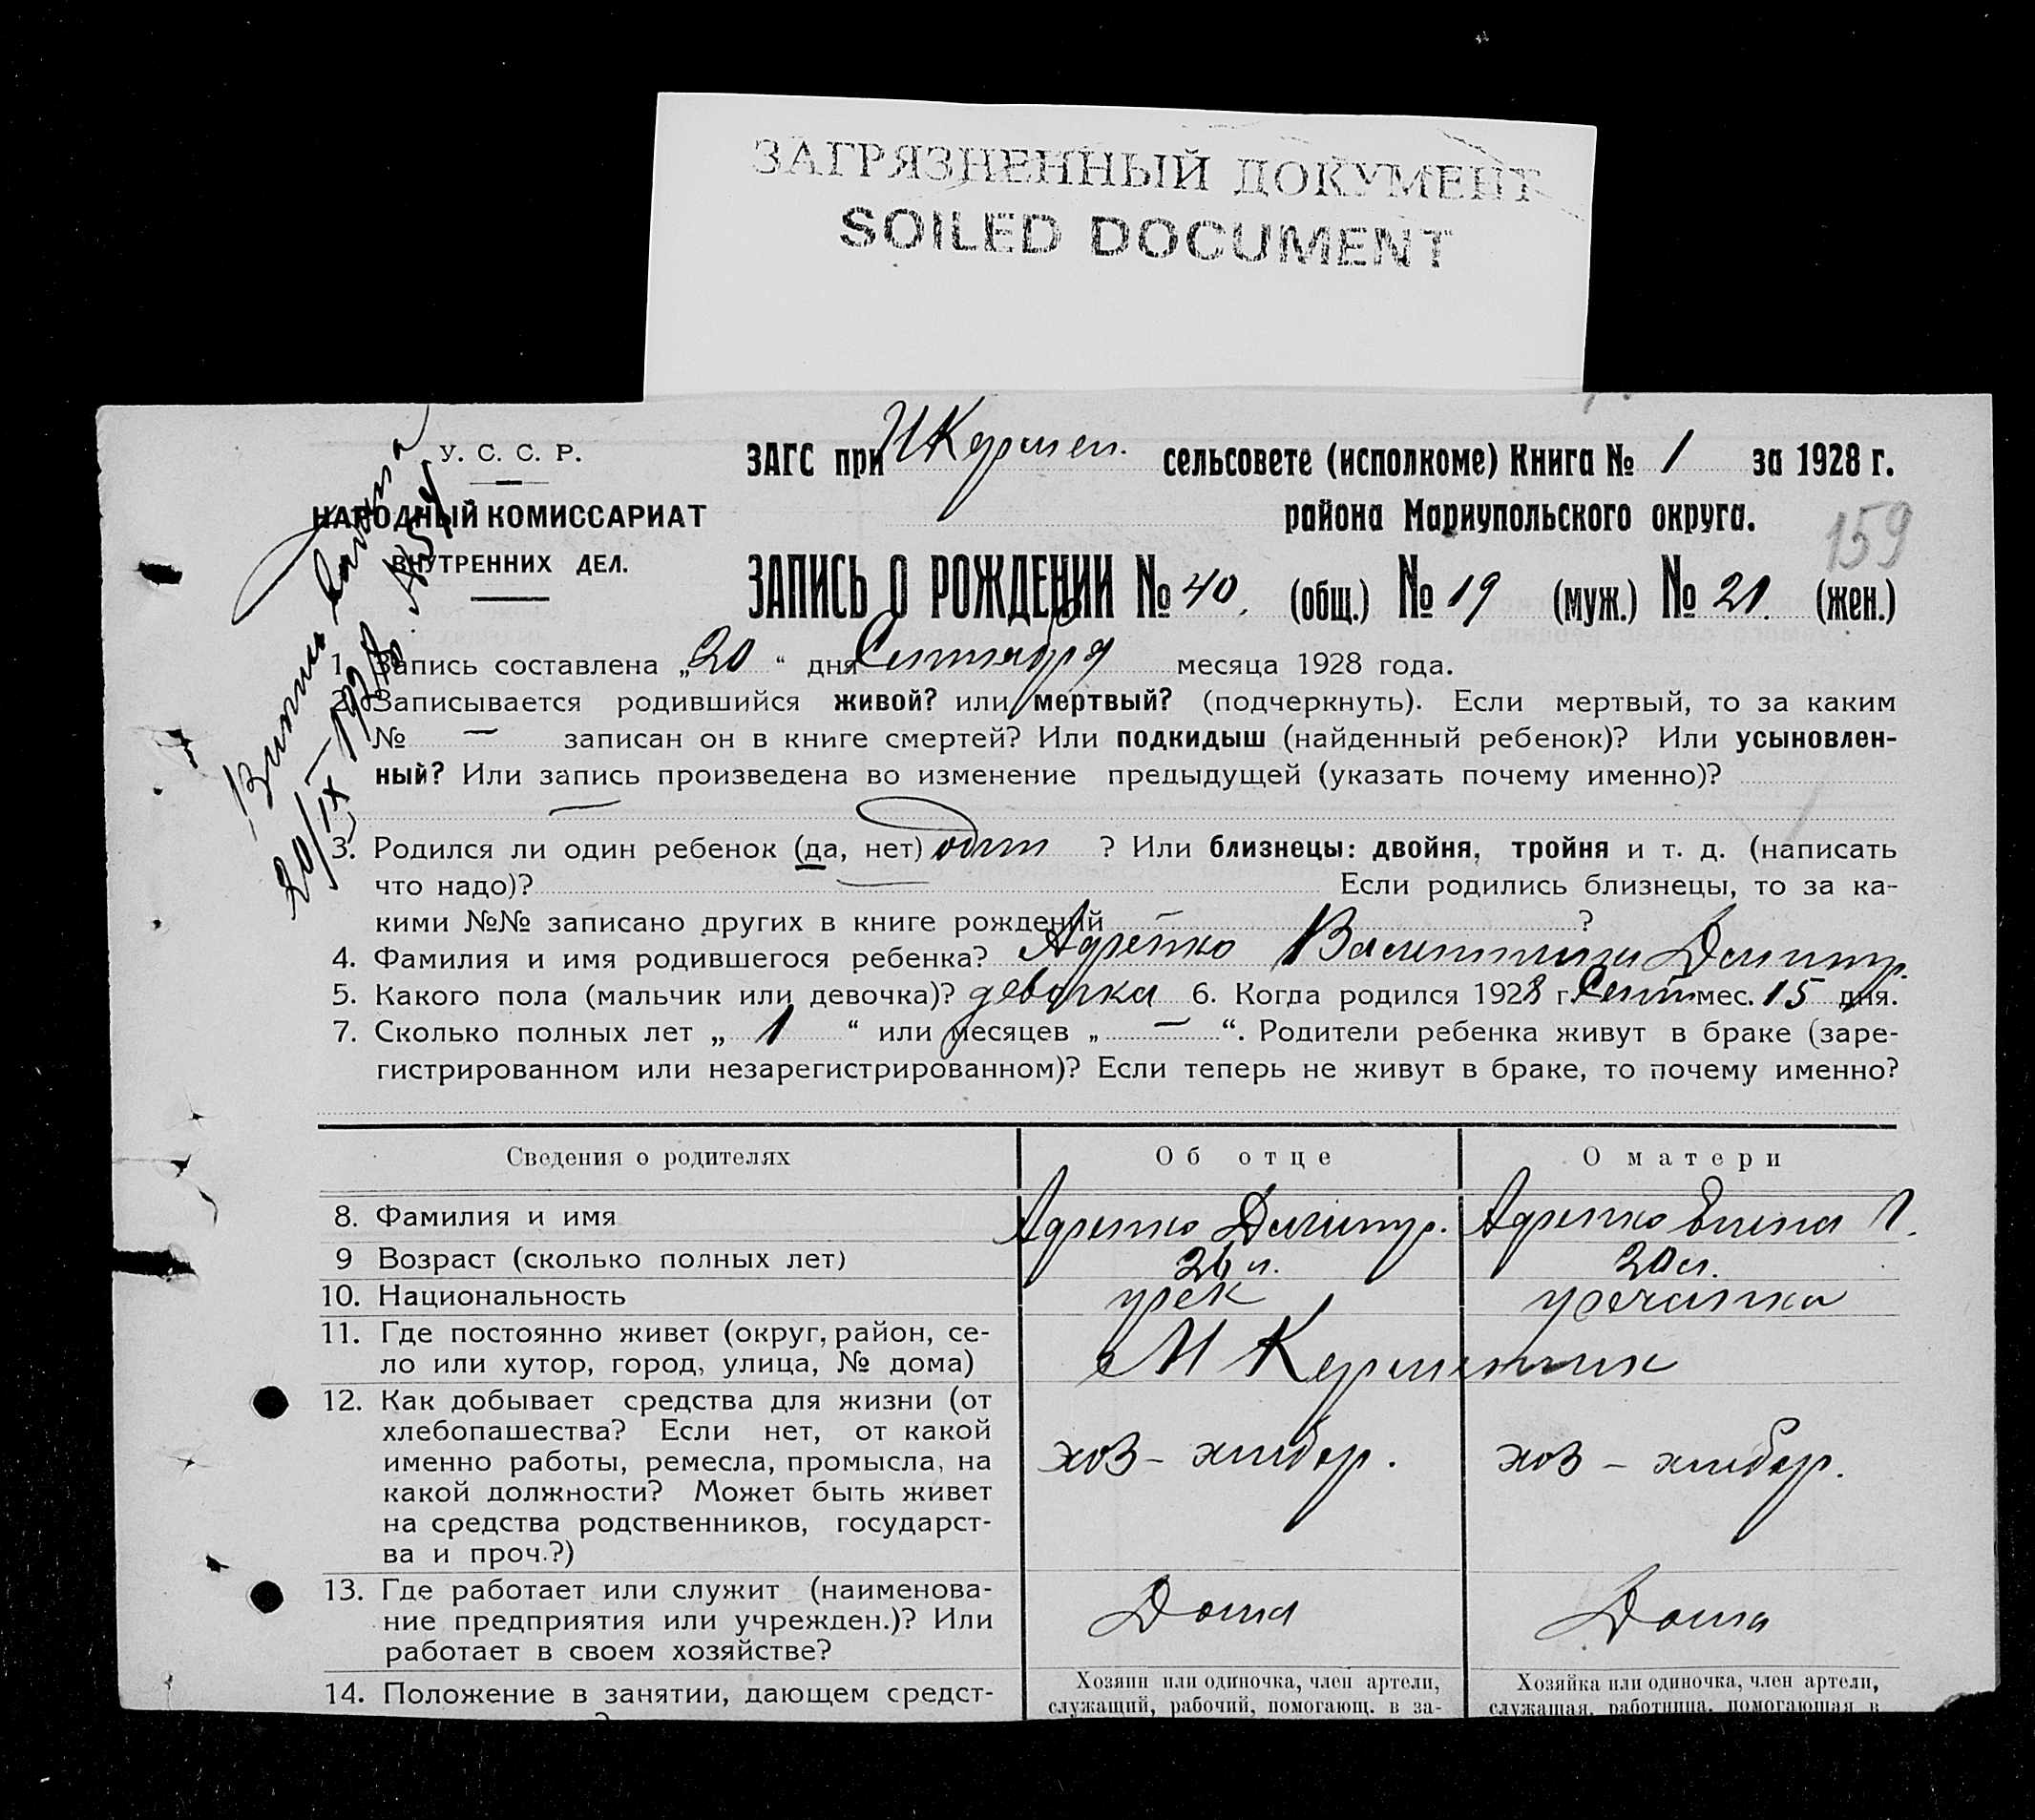 ЗАГРЯЗНЕННЫЙ ДОКУМЕНТ
SOILED DOCUMENT
У. С. С. Р.
НАРОДНЫЙ КОМИССАРИАТ
ВНУТРЕННИХ ДЕЛ.
20/IX-1928 №
ЗАГС при Кермен. сельсовете (исполкоме) Книга № 1 за 1928 г.
района Мариупольского округа.
159
ЗАПИСЬ О РОЖДЕНИИ № 40. (общ.) № 19 (муж.) № 21. (жен.)
1. Запись составлена „20“ дня Сентября месяца 1928 года.
2. Записывается родившийся живой? или мертвый? (подчеркнуть). Если мертвый, то за каким
№ — записан он в книге смертей? Или подкидыш (найденный ребенок)? Или усыновлен-
ный? Или запись произведена во изменение предыдущей (указать почему именно)?
—
3. Родился ли один ребенок (да, нет) один ? Или близнецы: двойня, тройня и т. д. (написать
что надо)? — Если родились близнецы, то за ка-
кими №№ записано других в книге рождений — ?
4. Фамилия и имя родившегося ребенка? Валентина Димитр.
5. Какого пола (мальчик или девочка)? девочка 6. Когда родился 1928 г. Сент. мес. 15 дня.
7. Сколько полных лет „ 1 “ или месяцев „ — “. Родители ребенка живут в браке (заре-
гистрированном или незарегистрированном)? Если теперь не живут в браке, то почему именно?
Сведения о родителях Об отце О матери
8. Фамилия и имя Димитр. Елена
9 Возраст (сколько полных лет) 26 л. 20 л.
10. Национальность грек гречанка
11. Где постоянно живет (округ, район, се-
ло или хутор, город, улица, № дома) Керменчик
12. Как добывает средства для жизни (от
хлебопашества? Если нет, от какой
именно работы, ремесла, промысла, на
какой должности? Может быть живет
на средства родственников, государст-
ва и проч.?)
хоз - хлебор. хоз - хлебор.
13. Где работает или служит (наименова-
ние предприятия или учрежден.)? Или
работает в своем хозяйстве?
Дома Дома
14. Положение в занятии, дающем средст-
Хозяин или одиночка, член артели,
служащий, рабочий, помогающ. в за-
Хозяйка или одиночка, член артели,
служащая, работница, помогающая в